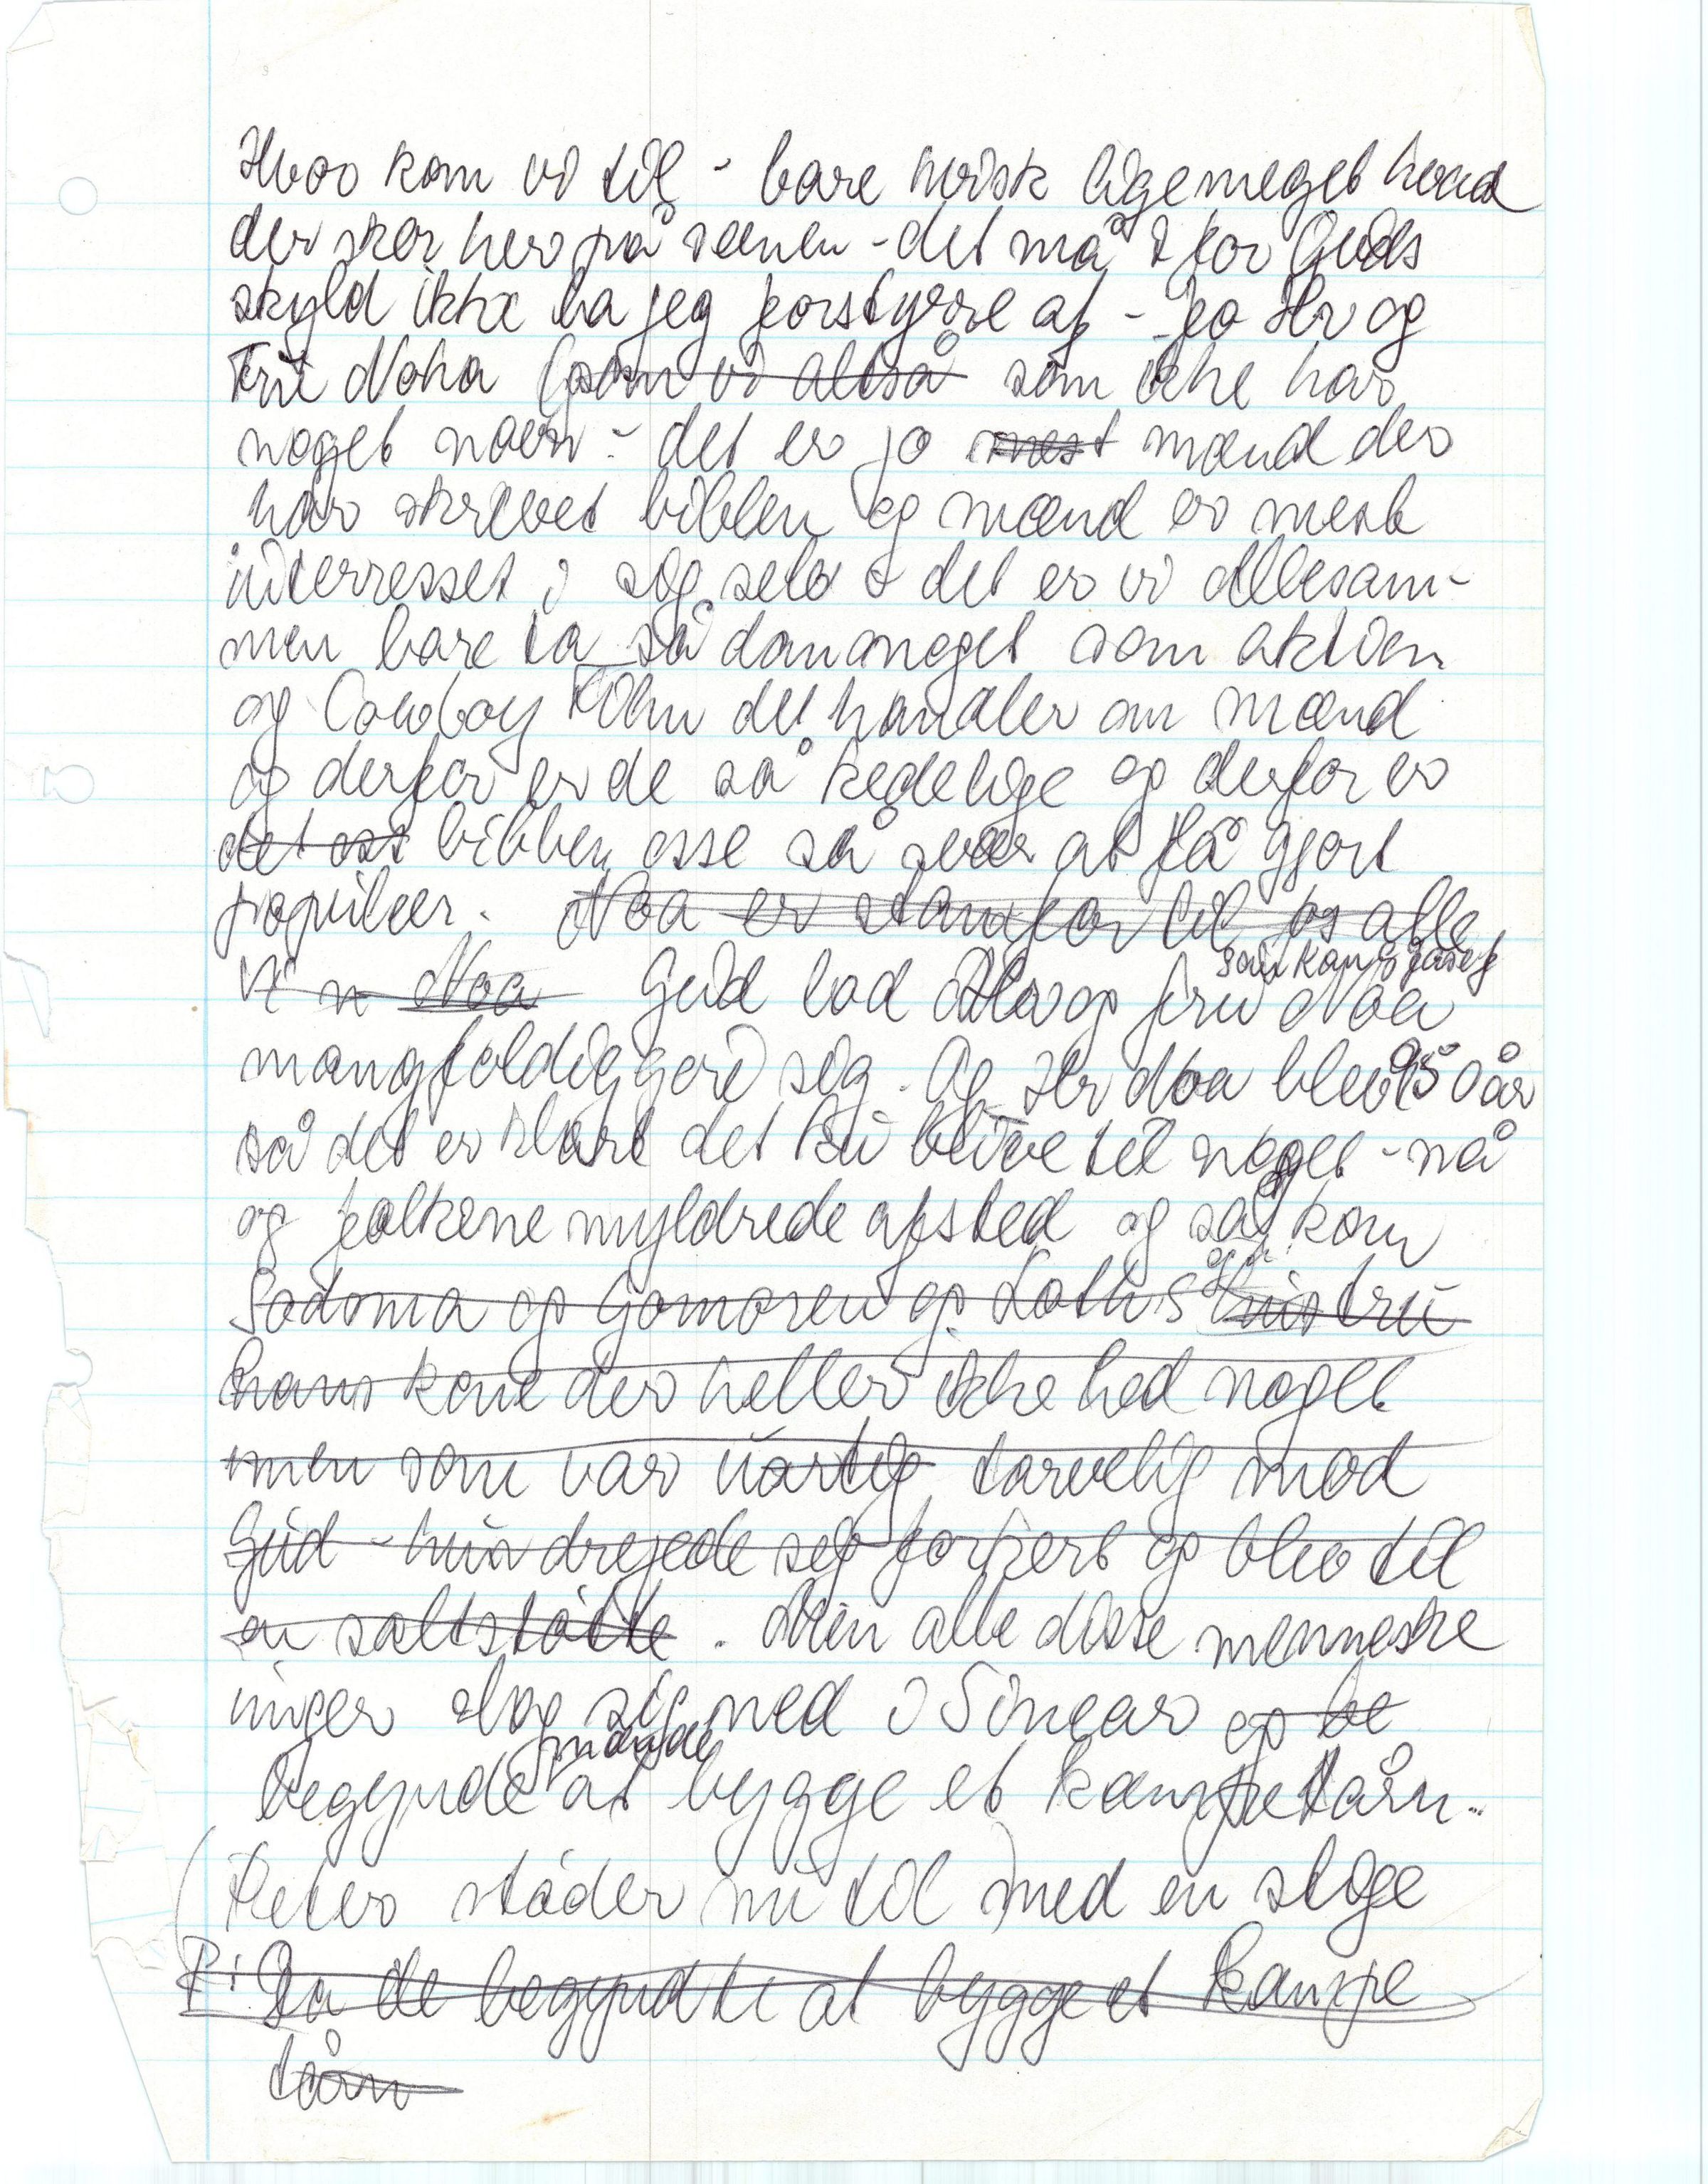 Hvor kom vi til - bare hvisk ligemeget hvad
der sker her på scenen - det må I for Guds
skyld ikke la jeg forstyrre af - Jo Hr og
Fru Noha (som vi altså som ikke har
noget navn - det er jo mest mænd der
har skrevet biblen og mænd er mest
interresset i sig selv & det er vi allesam-
men bare ta sådan noget som aktien
og Cowboy film det handler om mænd
og derfor er de så kedelige og derfor er
det oss biblen osse så svær at få gjort
populær. Noa er stamfar til os alle
Vi n Noa Gud lod Hr og fru Noa
mangfoldiggøre sig. Og Hr Noa blev 950 år
så det er klart det ku blive til noget - nå
og folkene myldrede afsted og så kom
Sodoma og Gomoren og Loth's hustru
hans kone der heller ikke hed noget
men som var uartig tarvelig mod
Gud - hun drejede sig forkert og blev til
en saltstøtte. Men alle disse menneske
inger slog sig ned i Sinear og be
begyndte at bygge et kæmpetårn..
(Peter støder nu til) med en stige
P: Da de begyndte at bygge et kæmpe
tårn